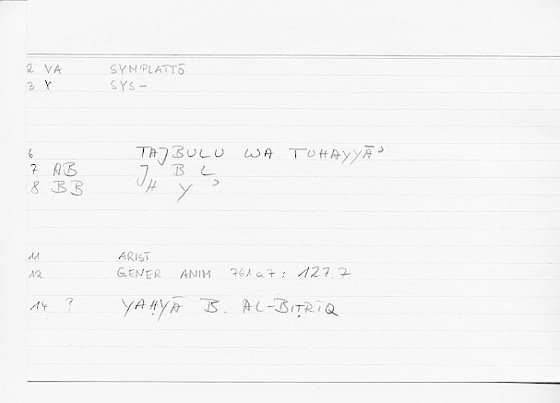 2 VA SYMPLATTŌ
3 Y SYS-
6 TAJBULU WA TUHAYYAʾ
7 AB J B L
8 BB H Y ʾ
11 ARIST
12 GENER ANIM 761a7 : 127.7
14 ? YAḤYĀ B. AL-BIṬRĪQ